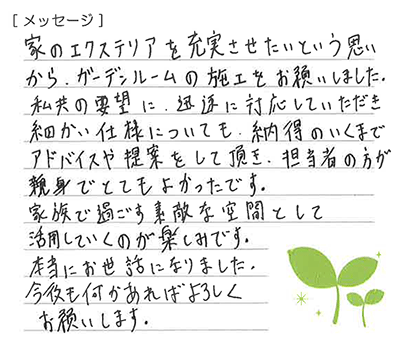 [ メッセージ ]
家のエクステリアを充実させたいという思い
から、ガーデンルームの施工をお願いしました。
私共の要望に、迅速に対応していただき
細かい仕様についても、納得のいくまで
アドバイスや提案をして頂き、担当者の方が
親身でとてもよかったです。
家族で過ごす素敵な空間として
活用していくのが楽しみです。
本当にお世話になりました。
今後も何かあればよろしく
お願いします。